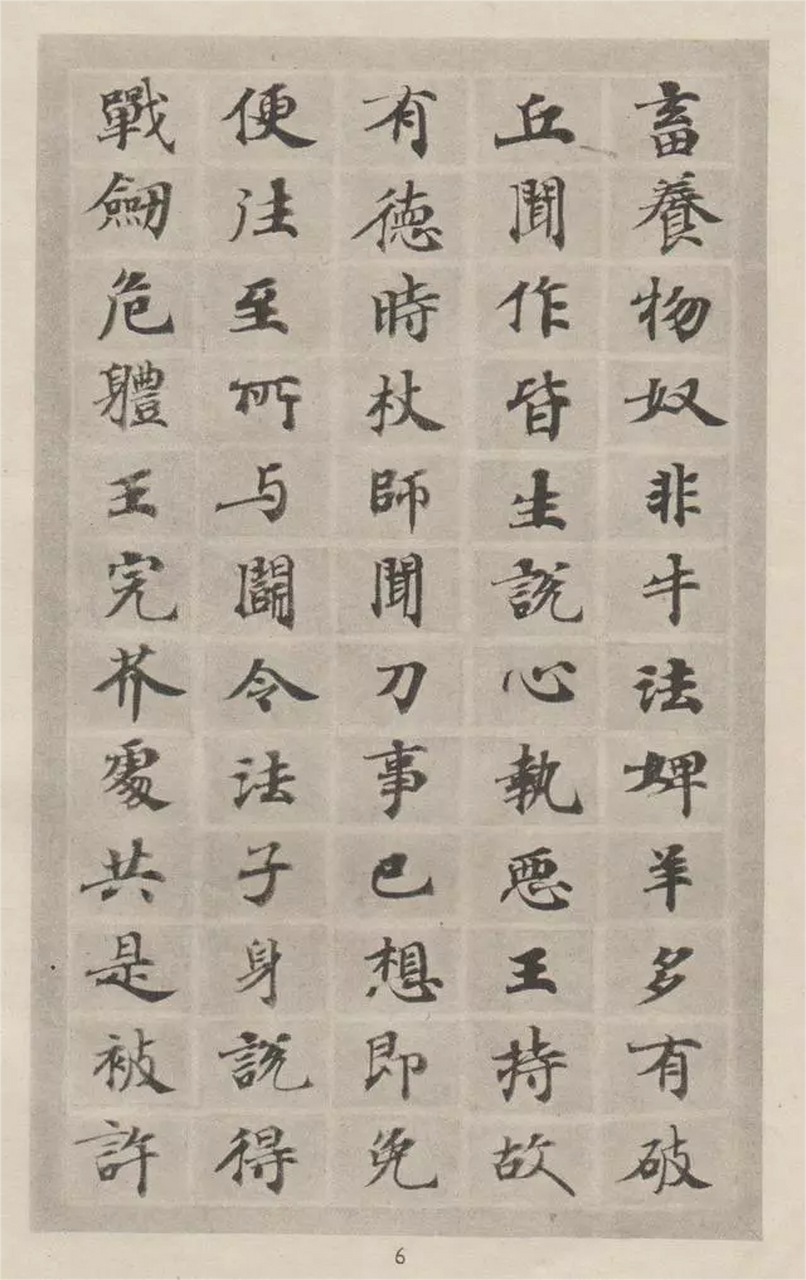 畜養物奴非牛法婢羊多有破
丘聞作皆生說心執惡王持故
有德時杖師聞刀事已想即免
便往至所与鬪令法子身說得
戰劒危體王完芥處共是被許
6